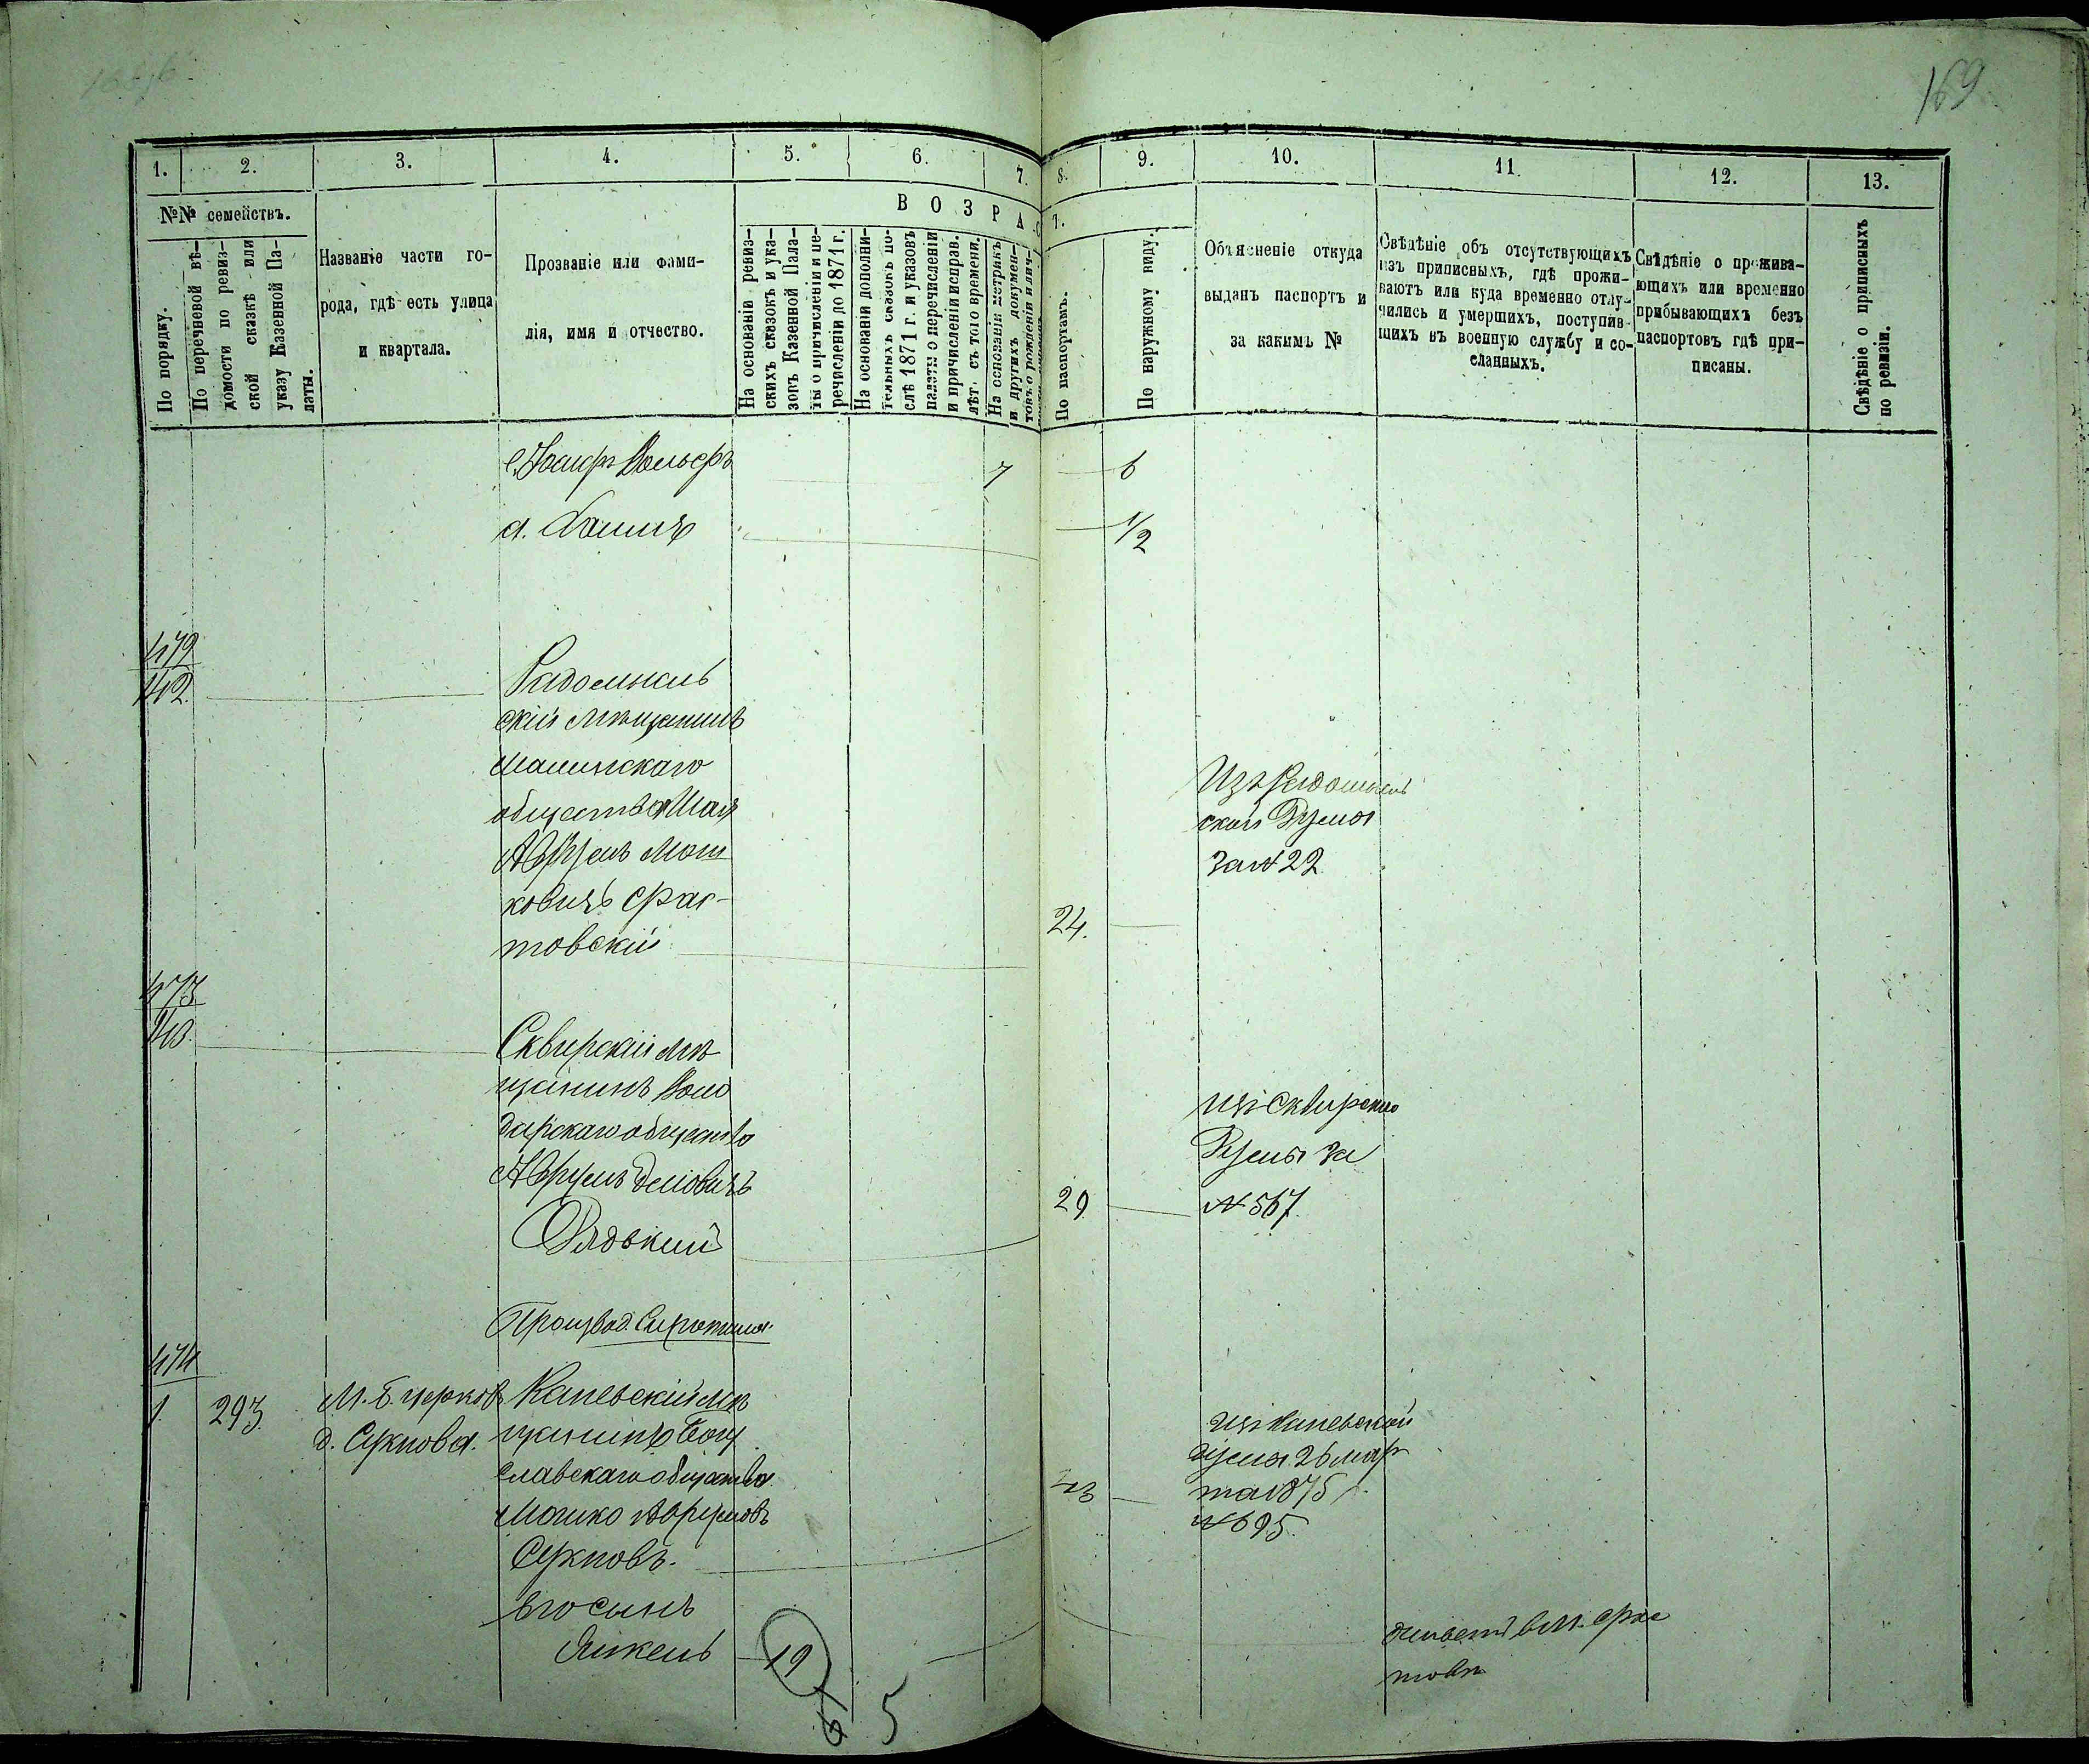 169
1.
2.
3.
4.
5.
6.
7.
8.
9.
10.
11
12.
13.
№№ семействъ.
По порядку.
По перечневой вѣ-
домости по ревиз-
ской сказкѣ или
указу Казенной Па-
латы.
Названіе части го-
рода, гдѣ есть улица
и квартала.
Прозваніе или фами-
лія, имя и отчество.
ВОЗРАС
На основаніи ревиз-
скихъ сказокъ и ука-
зовъ Казенной Пала-
ты о причисленіи и пе-
речисленіи до 1871 г.
На основаніи дополни-
тельныхъ сказокъ по-
слѣ 1871 г. и указовъ
палаты о перечисленіи
и причисленіи исправ.
лѣт. съ того времени.
На основаніи метрикъ
и другихъ докумен-
товъ о рожденіи и лич-
По паспортамъ.
По наружному виду.
Объясненіе откуда
выданъ паспортъ и
за какимъ №
Свѣдѣніе объ отсутствующихъ
изъ приписныхъ, гдѣ прожи-
ваютъ или куда временно отлу-
чились и умершихъ, поступив-
шихъ въ военную службу и со-
сланныхъ.
Свѣдѣніе о прожива-
ющихъ или временно
прибывающихъ безъ
паспортовъ гдѣ при-
писаны.
Свѣдѣніе о приписныхъ
по ревизіи.
Вольфъ 7 6
1/2
472
142
Радомысль
скій мѣщанинъ
общества
Аврумъ Мош
ковичъ Фас-
товскій
24.
Изъ Радомысль
ской Думы
за № 22
473
143.
Сквирскій мѣ
щанинъ Воло
дарскаго общества
Аврумъ
29
изъ Сквирской
Думы за
№ 567.
474
1. 293
М. Б. Церков
д. Сукнова.
Каневскій мѣ
щанинъ Богу
славскаго общества
Мошко Аврумовъ
Сукновъ.
23
изъ Каневской
Думы 26 мар
та 1875 г.
№ 695.
его сынъ
Янкель 19
живетъ в М. Фас
товѣ
5